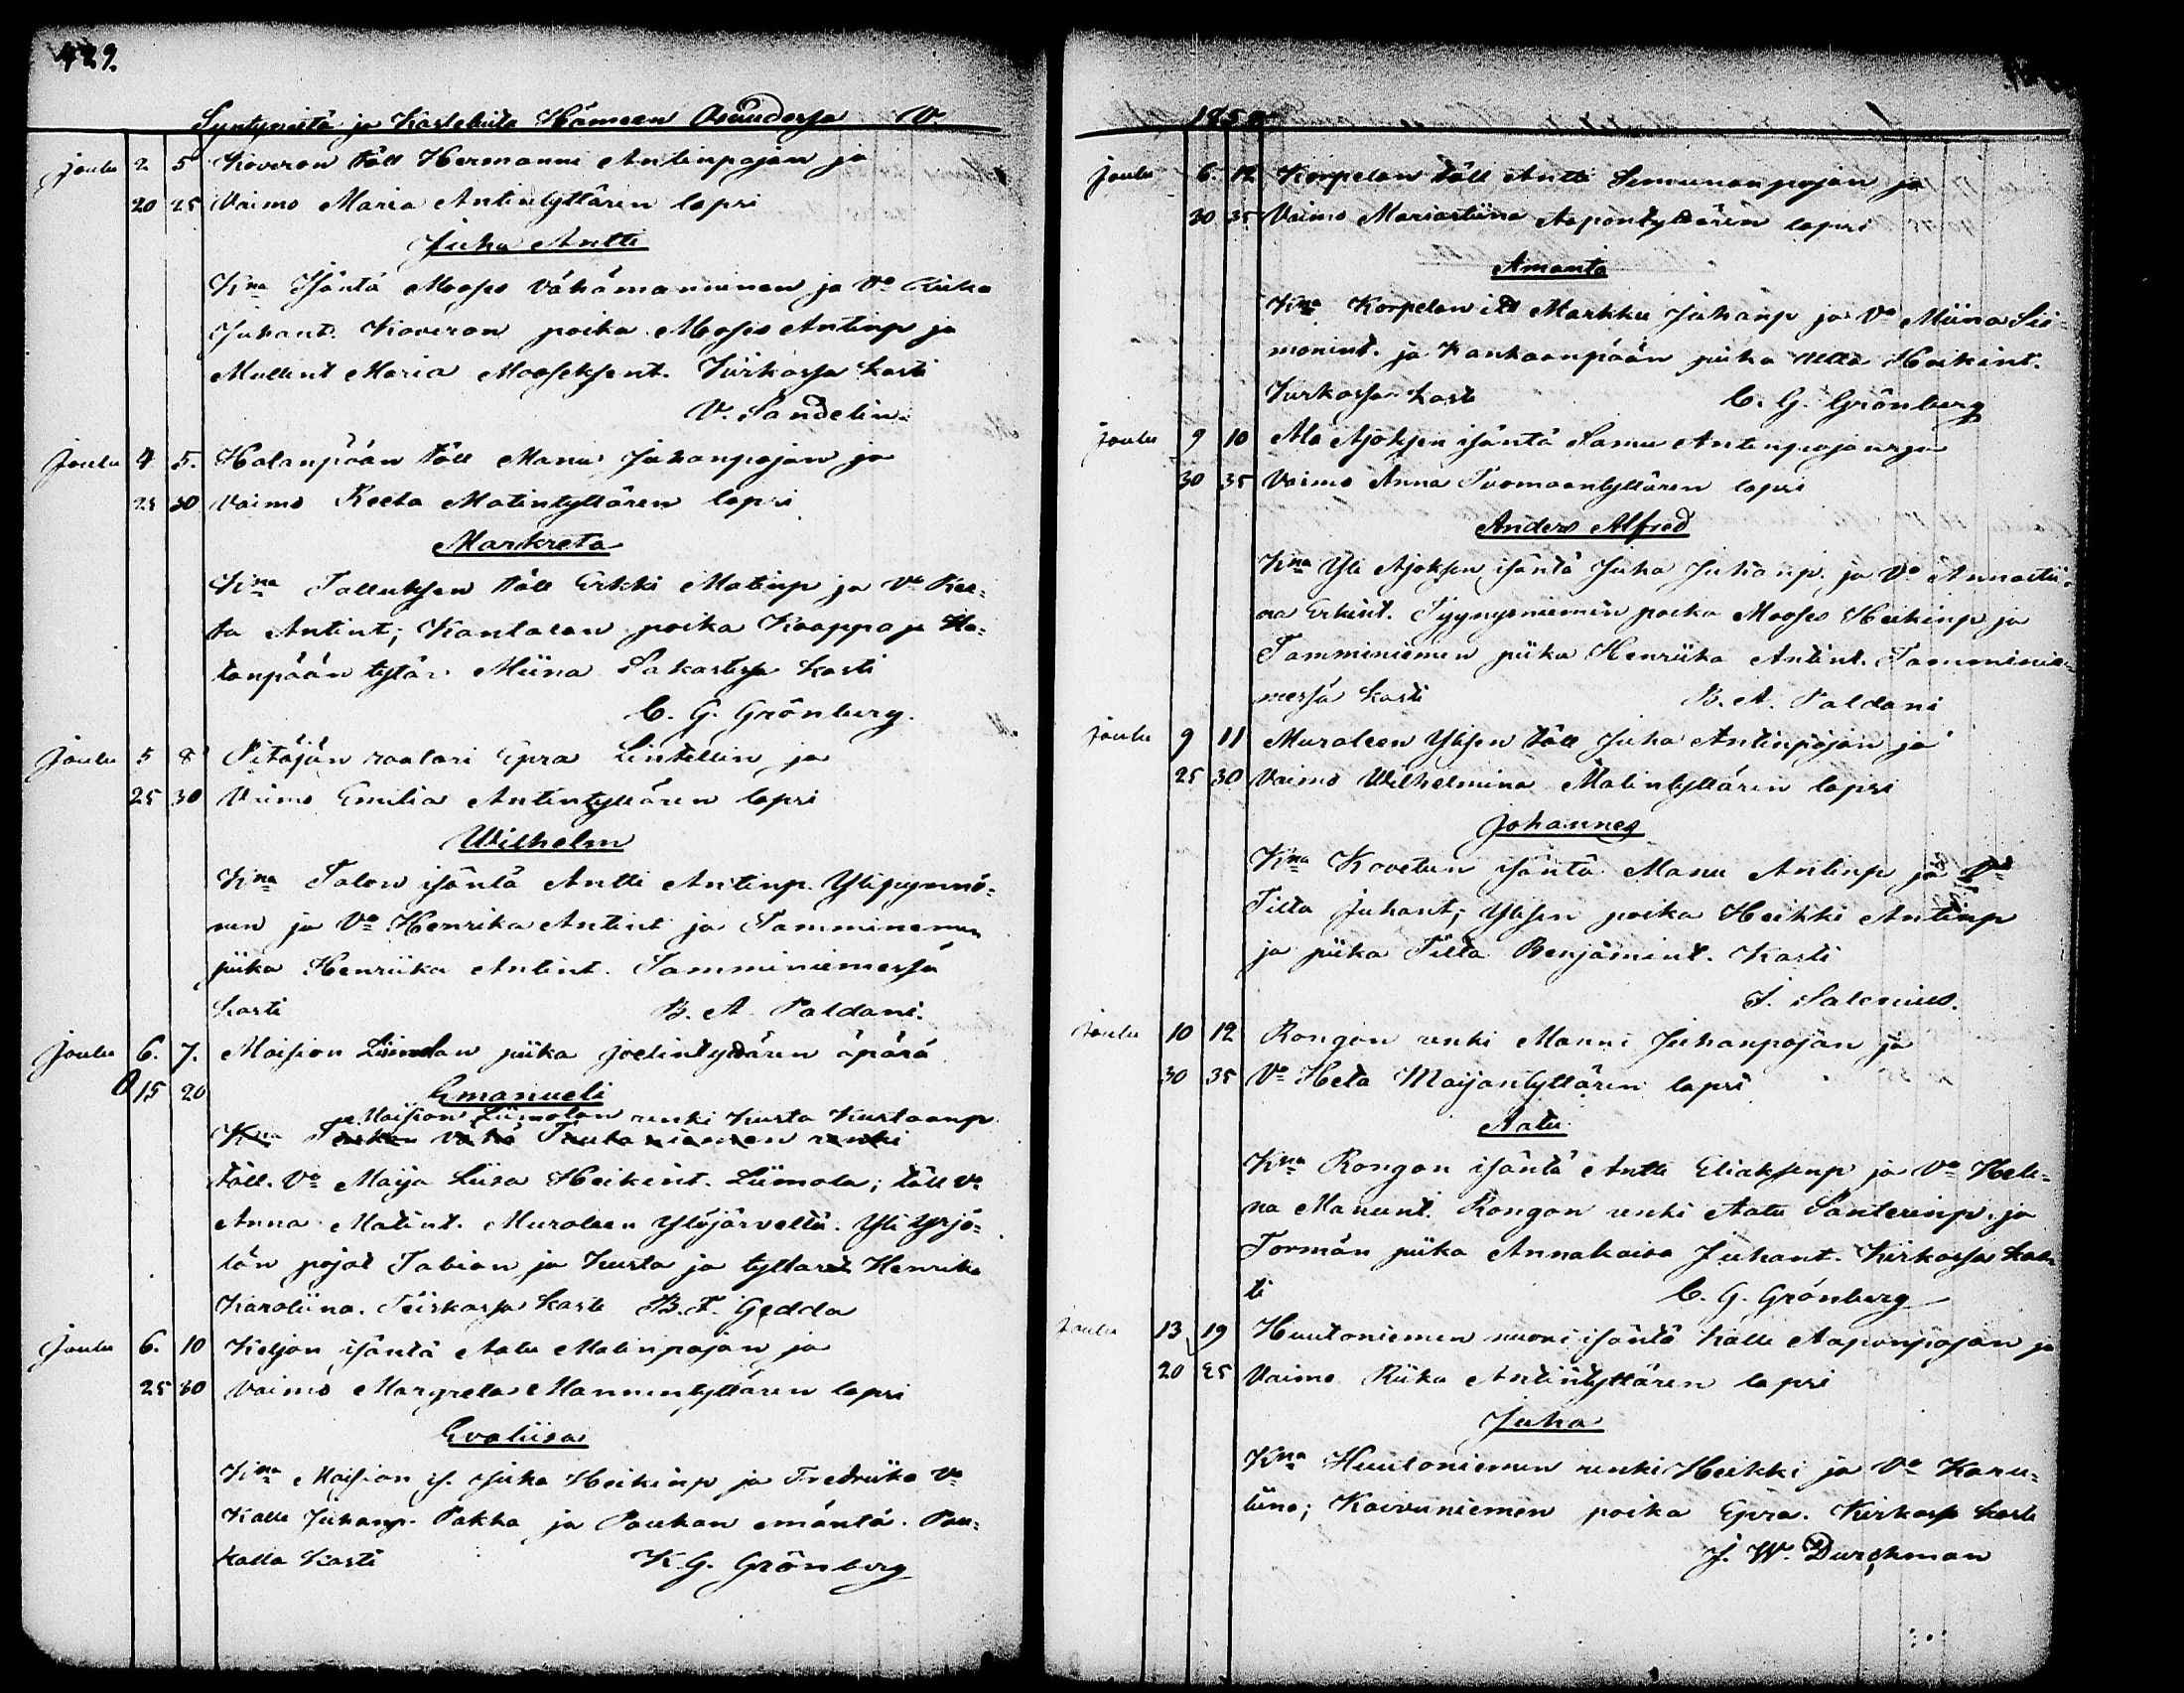 429.
Syntyneitä ja Kastetuita Hämeen V.
Joulu 2 5 Koveron töll Hermanni Antinpojan ja
20 25 Vaimo Maria Antintyttären lapsi
Juha Antti
Kna Isäntä Mooses Vähämanninen ja Vo
Juhant. Koveron poika Mooses Antinp ja
Maria Mooseksent. Kirkossa kasti
V. Sandelin.
Joulu 4 5. Halanpään töll Manu Juhanpojan ja
25 30 Vaimo Reeta Matintyttären lapsi
Markreta
Kna Talluksen töll Erkki Matinp ja Vo Ree-
ta Antint; poika Kaappo ja Ha-
lanpään tytär Miina kasti
C. G. Grönberg.
Joulu 5 8 Pitäjän raatari Epra Lintellin ja
25 30 Vaimo Emilia Antintyttären lapsi
Wilhelm
Kna Talon isäntä Antti Antinp.
nen ja Vo Henrika Antint ja Tamminiemen
piika Henriika Antint. Tamminiemessä
kasti B. A. Paldani.
Joulu 6. 7. Moision Liimolan piika Joelintyttären äpärä
15 20 Emanueli
Moision Liimolan renki Kusta Kustaanp
Kna renki
töll. Vo Maija Liisa Heikint. Liimola; töll vo
Anna Matint. Muroleen Ylöjärveltä. Yli Yrjö-
län pojat Fabian ja Kusta ja tyttäret Henrika
Karoliina. Teiskossa kasti B. F. Gedda
Joulu 6. 10 Keljon isäntä Aatu Matinpojan ja
25 30 Vaimo Margreta Mannuntyttären lapsi
Evaliisa
Kna Moision is. Juha Heikinp ja Fredriika Vo
Kalle Juhanp. Pakka ja Paukan emäntä. Pau-
kalla kasti K. G. Grönberg
185
Joulu 6. 12 Korpelan töll Antti Simunanpojan ja
30 35 Vaimo Mariastiina Aapontyttären lapsi
Amanta
Kna Korpelan Markku Juhanp ja Vo Miina Sii-
monint. ja Kankaanpään piika Heikint.
Kirkossa kasti C. G. Grönberg
Joulu 9 10 Ala Ajoksen isäntä Samu Antinpojan ja
30 35 Vaimo Anna Tuomaantyttären lapsi
Anders Alfred
Kna Yli Ajoksen isäntä Juha Juhanp. ja Vo Annastii-
na Erkint. Tyynysniemen poika Mooses Heikinp ja
Tamminiemen piika Henriika Antint. Tamminie-
messä kasti B. A. Paldani
Joulu 9 11 Muroleen Yksen töll Juha Antinpojan ja
25 30 Vaimo Wilhelmina Matintyttären lapsi
Johannes
Kna Kovelan isäntä Manu Antinp ja Vo
Tilta Juhant; Yksen poika Heikki Antinp
ja piika Tilta Benjamint. Kasti
J. Salenius.
Joulu 10 12 Rongon renki Manni Juhanpojan ja
30 35 Vo Heta Maijantyttären lapsi
Aatu
Kna Rongon isäntä Antti Eliaksenp ja Vo Hele-
na Manunt. Rongon renki Aatu Santerinp. ja
Tormän piika Annakaisa Juhant. Kirkossa kas-
ti C. G. Grönberg
Joulu 13 19 Huutoniemen nuori isäntä Kalle Aaponpojan ja
20 25 Vaimo Riika Antintyttären lapsi
Juha
Kna Huutoniemen renki Heikki ja Vo Karu-
liina; Koivuniemen poika Epra. Kirkossa kasti
J. W. Durchman